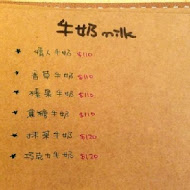 牛奶 milk
★ 情人牛奶 $110
★ 香草牛奶 $110
★ 榛果牛奶 $110
★ 蜜糖牛奶 $110
★ 抹茶牛奶 $120
★ 巧克力牛奶 $120